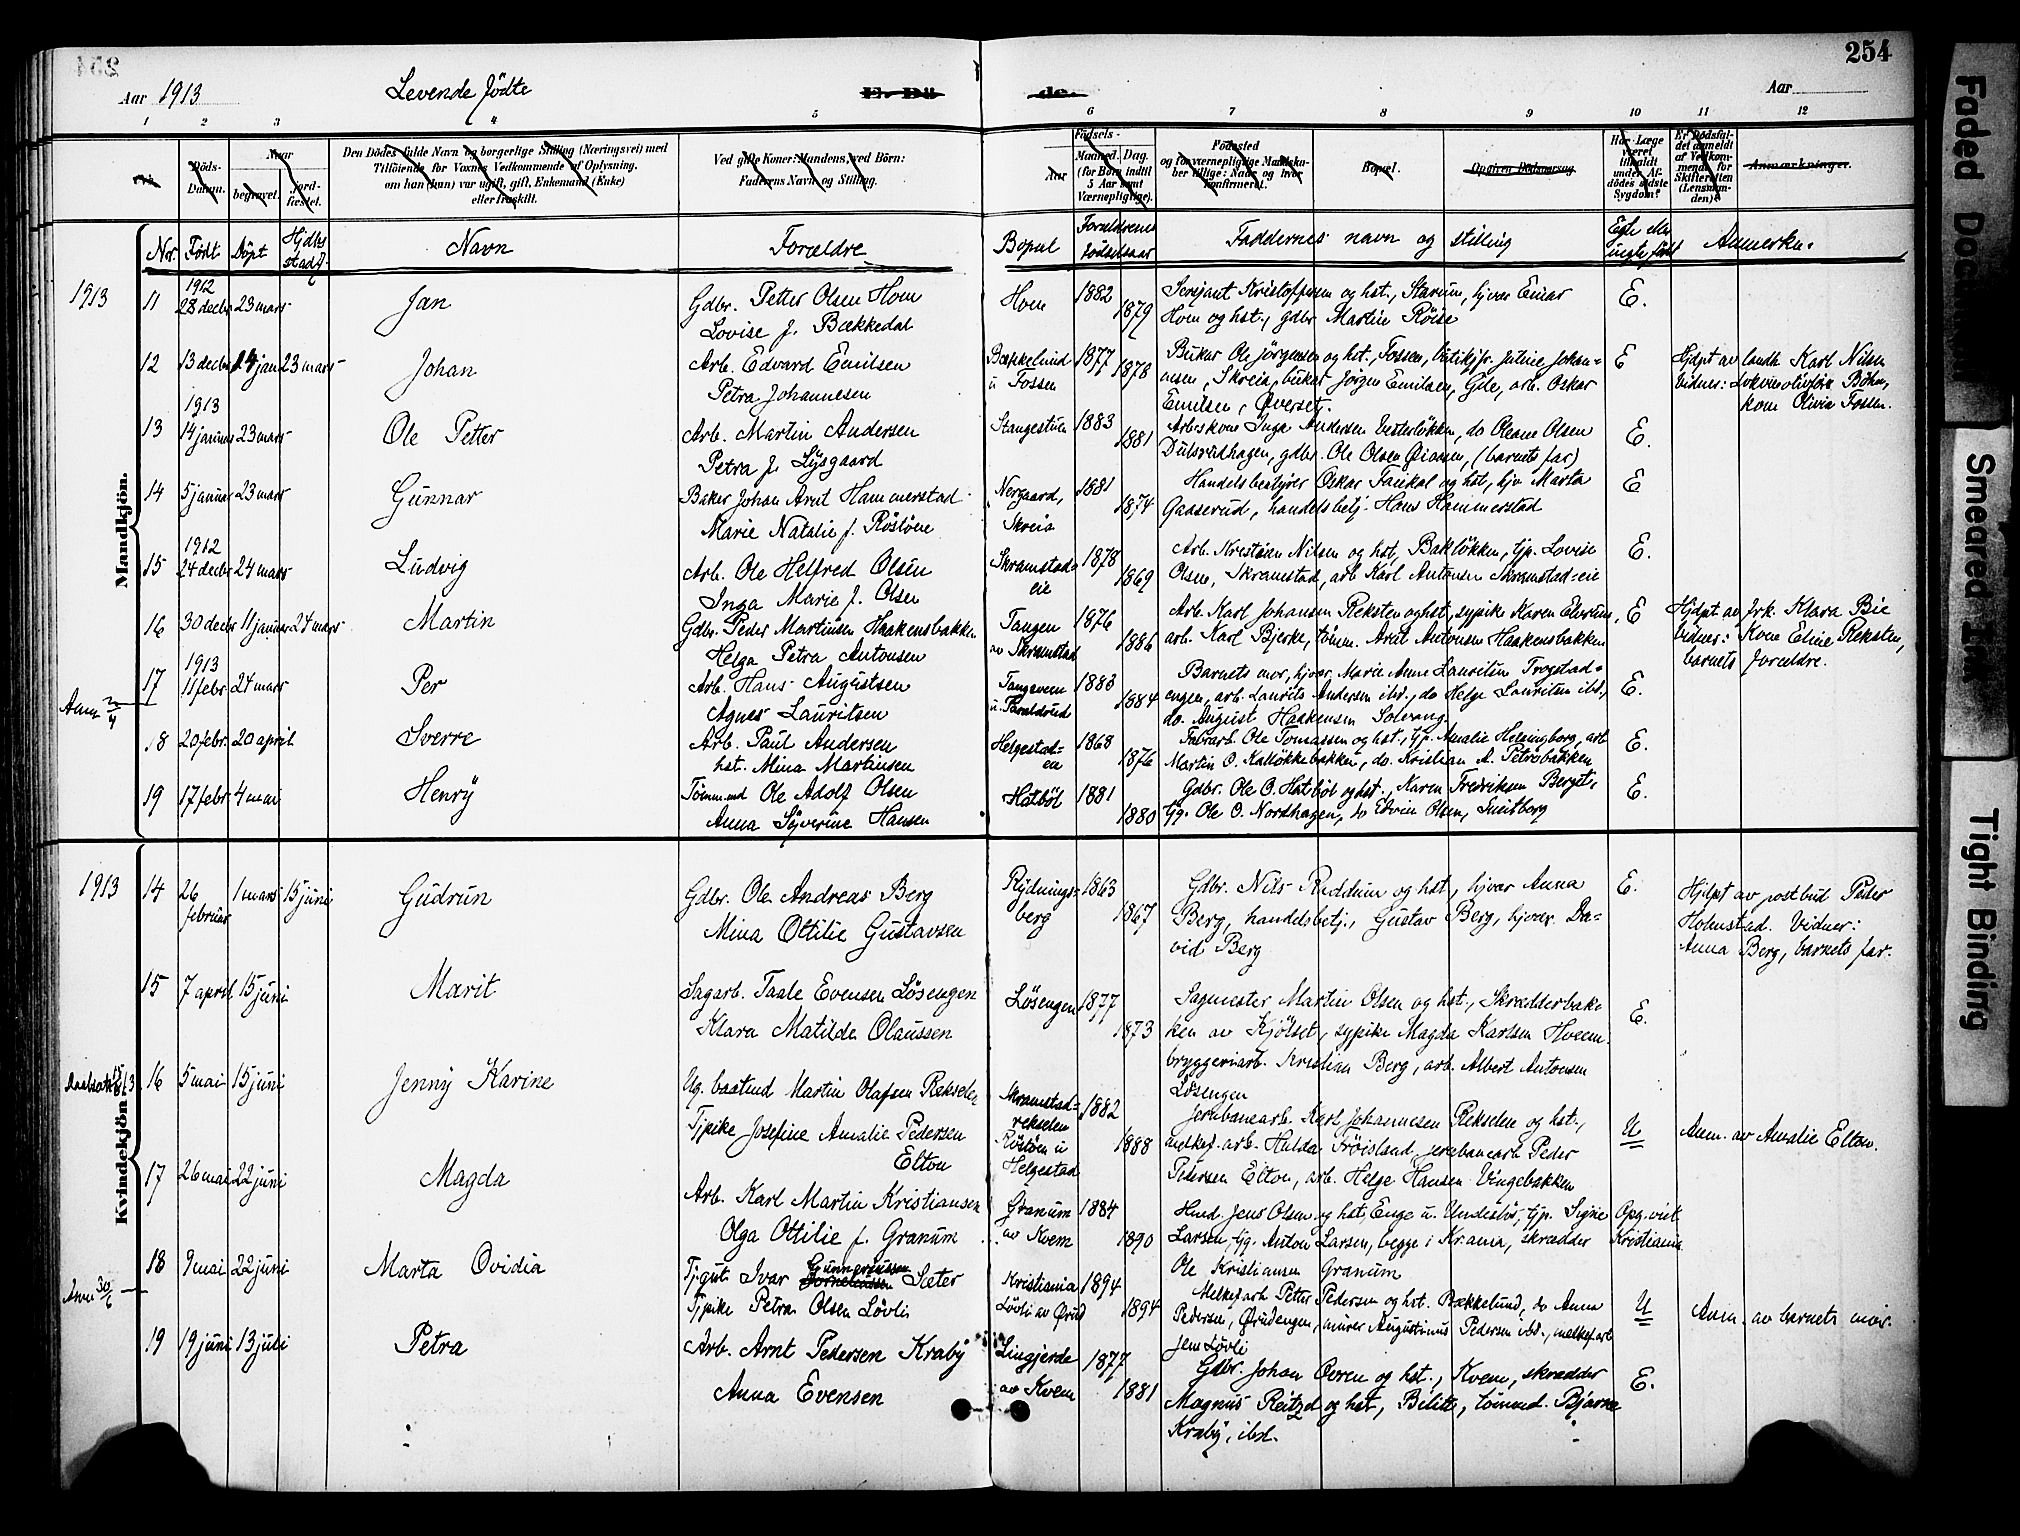 254
Aar 1913 Levende födte E. Dö de. Aar
1 2 3 4 5 6 7 8 9 10 11 12
Döds-Datum.
Naar
begravet.
Jord-fæstet.
Den Dödes fulde Navn og borgerlige Stilling (Næringsvei) med
Tilföiende for Voxnes Vedkommende af Oplysning,
om han (hun) var ugift, gift, Enkemand (Enke)
eller fraskilt.
Ved gifte Koner: Mandens, ved Börn:
Faderens Navn og Stilling.
Födsels-
Aar
Maaned. Dag.
(for Börn indtil
5 Aar samt
Værnepligtige).
Födested
og for værnepligtige Mandska-
ber tillige: Naar og hvor
konfirmeret.
Bopel.
Opgiven Dödsaarsag.
Har Læge
været
tilkaldt
under Af-
dödes sidste
Sygdom?
Er Dödsfal-
det anmeldt
af Vedkom-
mende for
Skifteretten
(Lensman-
den)?
Anmærkninger.
Nr. Födt Döpt Hjdbs stadf. Navn Forældre Bopæl Forældrenes födselsaar Faddernes navn og stilling Egte eller uegte född Anmerkn.
Mandkjön.
1913
11 1912 28 decbr 23 mars Jan
Gdbr. Petter Olsen Hom
Lovise f. Bækkedal
Hom 1882 1879
Sersjant Kristoffersen og hst., Starum, hjvær Einar
Hom og hst., gdbr Martin Röise
E.
12 13 decbr 14 jan 23 mars Johan
Arb. Edvard Emilsen
Petra Johannesen
Bækkelund
u Fossen
1877 1878
Bukar Ole Jörgensen og hst., Fossen, butikjfr. Jutine Johan-
nesen, Skreia, buker Jörgen Emilsen, Gile, arb. Oskar
Emilsen, Överset.
E
Hjdpt av landh Karl Nilsen
Vidner:
kone Olivia Fossen.
13 1913 14 januar 23 mars Ole Petter
Arb. Martin Andersen
Petra f. Lysgaard
Stangestuen 1883 1881
Arbeskone Inga Andersen Vesterlökken, do Oleane Olsen
Dulsrudhagen, gdbr. Ole Olsen, (barnets far)
E.
14 5 januar 23 mars Gunnar
Baker Johan Arnt Hammerstad
Marie Natalie f. Röslöne
Nergaard,
Skreia
1881 1874
Handelsbestyrer Oskar Faukal og hst, hjv Marta
Gaaserud, handelsbetj. Hans Hammerstad
E
15 1912 24 decbr 24 mars Ludvig
Arb. Ole Helfred Olsen
Inga Marie f. Olsen
Skramstads
eie
1878 1869
Arb. Kristian Nilsen og hst, Baklökken, tjp. Lovise
Olsen, Skramstad, arb Karl Antonsen Skramstad-eie
E.
16 30 decbr 11 januar 24 mars Martin
Gdbr. Peder Martinsen Haakensbakken
Helga Petra Antonsen
Tangen
av Skramstad
1876 1886
Arb. Karl Johansen Reksten og hst, sypike Karen Evertsen,
arb. Karl Bjerke, tömm. Arnt Antonsen Haakensbakken
E
Hjdpt av frk. Klara Bie
Vidner: Kone Eline Reksten,
barnets forældre.
17 1913 11 febr. 24 mars Per
Arb. Hans Augustsen
Agnes Lauritsen
Tangeveen
u. Paraldrud
1883 1884
Barnets mor, hjvær. Marie Anne Lauritsen Trogstad-
engen, arb. Laurits Andersen ibd., do Helge Lauritsen ibd.,
do. August Haakensen Solvang.
E.
Anm 2/4
18 20 febr. 20 april Sverre
Arb. Paul Andersen
hst. Mina Martinsen
Helgestad-
en
1868 1876
Fabrarb. Ole Tomassen og hst., tjp. Amalie Helsingborg, arb
Martin O. Kallökkebakken, do. Kristian A. Petrobakken
E.
19 17 febr. 4 mai Henry
Tömm.md Ole Adolf Olsen
Anna Syverine Hansen
Hatböl 1881 1880
Gdbr. Ole O. Hatsböl og hst., Karen Fredriksen Berget,
tjg. Ole O. Nordhagen, do Edvin Olsen, Smitborg
E.
Kvindekjön.
1913
14 26 februar 1 mars 15 juni Gudrun
Gdbr. Ole Andreas Berg
Mina Ottilie Gustavsen
Rydnings-
berg
1863 1867
Gdbr. Nils Ruddum og hst, hjvær Anna
Berg, handelsbetj., Gustav Berg, hjvær. Da-
vid Berg
E.
Hjdpt av postbud Peter
Holmstad. Vidner:
Anna Berg, barnets far.
15 7 april 15 juni Marit
Sagarb. Taale Evensen Lösengen
Klara Matilde Olaussen
Lösengen 1877 1873
Sagmester Martin Olsen og hst., Skrædderbak-
ken av Kjölset, sypike Magda Karlsen Hveem,
bryggeriarb. Kristian Berg, arb. Albert Antonsen
Lösengen
E.
16 5 mai 15 juni Jenny Karine
Ug. baatmd Martin Olafsen Rekselen
Tjpike Josefine Amalie Pedersen
Elton
Skramstad-
rekselen
Rörtöen u
Helgestad
1882 1888
Jernbanearb. Karl Johannesen Rekselen og hst.,
melkef. arb. Hulda Fröisland, jernbanearb Peder
Pedersen Elton, arb. Helge Hansen Vingebakken
U
Anm. av Amalie Elton.
17 26 mai 22 juni Magda
Arb. Karl Martin Kristiansen
Olga Ottilie f. Granum
Granum
av Kvem
1884 1890
Hmd. Jens Olsen og hst, Enge u. Undeslös, tjp. Signe
Larsen, tjg. Anton Larsen, begge i Kr.ania, skrædder
Ole Kristiansen Granum
Opg. viet
Kristiania
18 9 mai 22 juni Marta Ovidia
Tjgut Ivar Sæter
Tjpike Petra Olsen Lövli
Kristiania
Lövli av Örud
1894 1894
Melkef.arb Petter Pedersen og hst. Bækkelund, do Anna
Pedersen, Örudengen, murer Augustinus Pedersen ibd., melkef.arb
Jens Lövli
U
Anm. av barnets mor.
Anm 30/6
19 19 juni 13 juli Petra
Arb. Arnt Pedersen Kraby
Anna Evensen
Lingjerde
av Kvem
1877 1881
Gdbr. Johan Ovren og hst., Kvem, skrædder
Magnus Reitzel og hst, Bilitt, tömmd. Bjarne
Kraby, ibd.
E.
Faded Document
Smeared Ink
Tight Binding